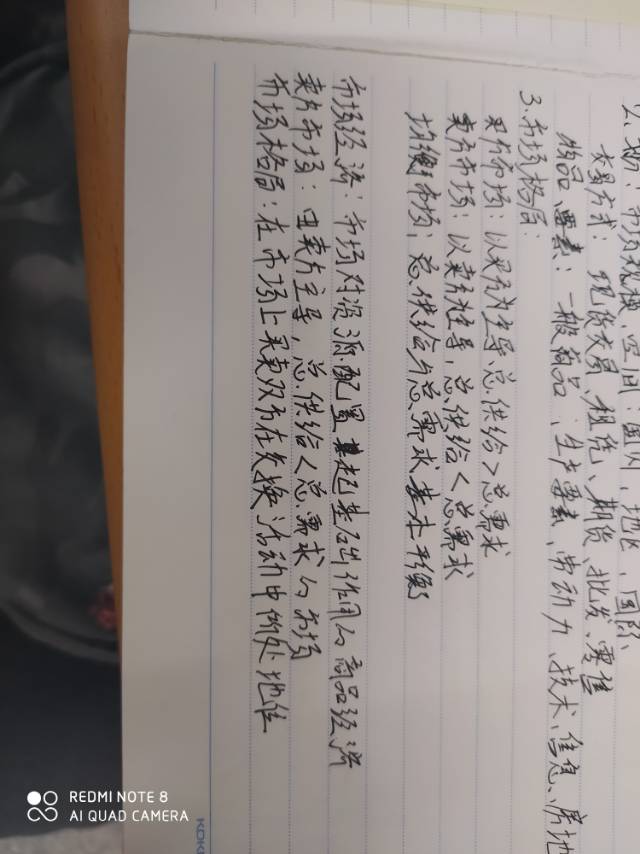 2、划: 市场规模、空间: 国内, 地区, 国际、
交易方式: 现货交易、租凭、期货、批发、零售
物品、要素: 一般商品、生产要素、劳动力、技术、信息、房地
3.市场格局:
买方市场: 以买方为主导总供给>总需求
卖方市场: 以卖方为主导, 总供给<总需求
均衡市场; 总供给与总需求基本平衡
市场经济: 市场对资源配置起基础作用的商品经济
卖方市场: 由卖方主导, 总供给<总需求的市场
市场格局: 在市场上买卖双方在交换活动中所处地位
REDMI NOTE 8
AI QUAD CAMERA